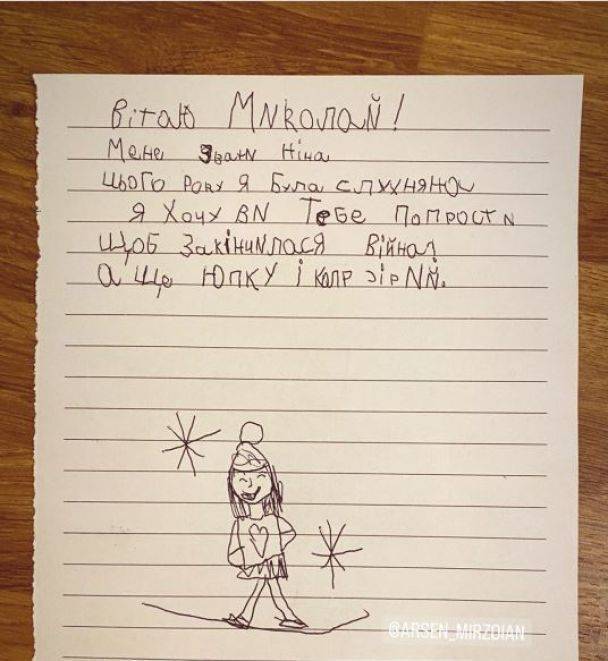 Вітаю Миколай!
Мене звати Ніна
Цього року я була слухняною
Я хочу ви Тебе попрости
Щоб закінчилася війна!
А ще юпку і колр зірий.
@ARSEN_MIRZOIAN